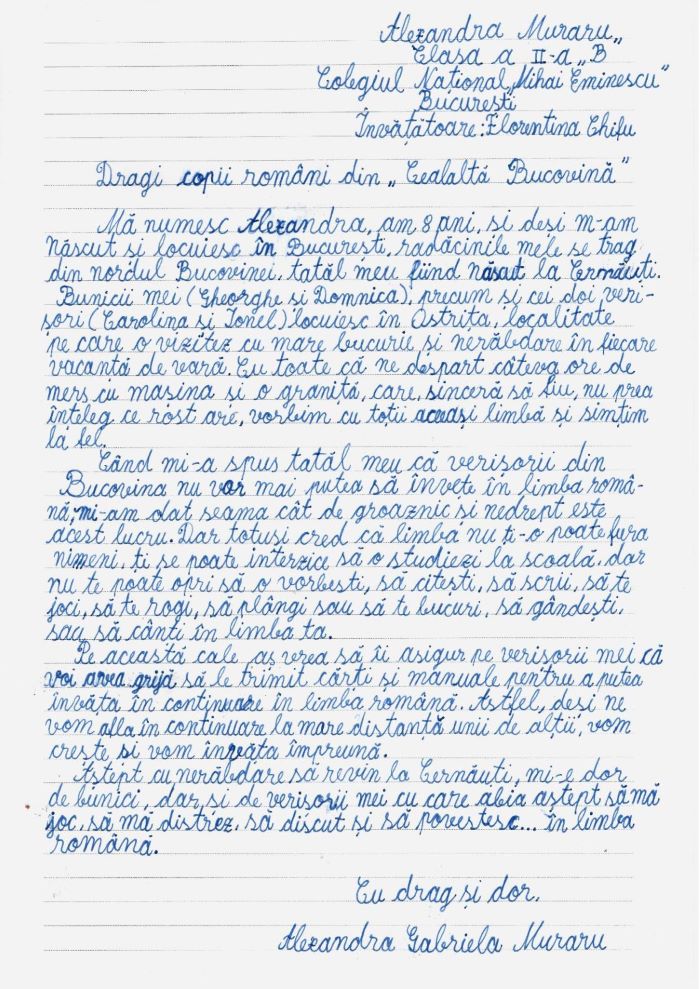 Alexandra Muraru„
Clasa a II-a „B
Colegiul Național„Mihai Eminescu"
București
Învățătoare: Florentina Chifu
Dragi copii români din „Cealaltă Bucovină"
Mă numesc Alexandra, am 8 ani, și deși m-am
născut și locuiesc în București, radăcinile mele se trag
din nordul Bucovinei, tatăl meu fiind născut la Cernăuți.
Bunicii mei (Gheorghe și Domnica), precum și cei doi veri-
șori (Carolina și Ionel) locuiesc în Ostrița, localitate
pe care o vizitez cu mare bucurie și nerăbdare în fiecare
vacanță de vară. Cu toate că ne despart câteva ore de
mers cu mașina și o graniță, care, sinceră să fiu, nu prea
înțeleg ce rost are, vorbim cu toții aceași limbă și simțim
la fel.
Când mi-a spus tatăl meu că verișorii din
Bucovina nu vor mai putea să învețe în limba româ-
nă, mi-am dat seama cât de groaznic și nedrept este
acest lucru. Dar totuși cred că limba nu ți-o poate fura
nimeni, ți se poate interzice să o studiezi la școală, dar
nu te poate opri să o vorbești, să citești, să scrii, să te
joci, să te rogi, să plângi sau să te bucuri, să gândești,
sau să cânți în limba ta.
Pe această cale, aș vrea să îi asigur pe verișorii mei că
voi avea grijă să le trimit cărți și manuale pentru a putea
învăța în continuare în limba română. Astfel, deși ne
vom afla în continuare la mare distanță unii de alții, vom
crește și vom învăța împreună.
Aștept cu nerăbdare să revin la Cernăuți, mi-e dor
de bunici, dar și de verișorii mei cu care abia aștept să mă
joc, să mă distrez, să discut și să povestesc... în limba
română.
Cu drag și dor,
Alexandra Gabriela Muraru